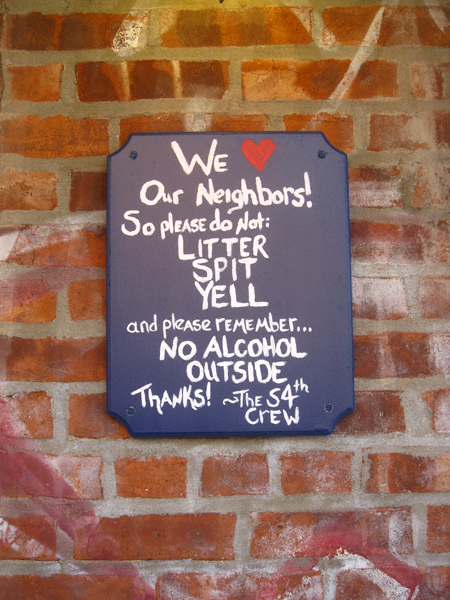 We ♥
Our Neighbors!
So please do Not:
LITTER
SPIT
YELL
and please remember...
NO ALCOHOL
OUTSIDE
THANKS! ~The 54th
CREW